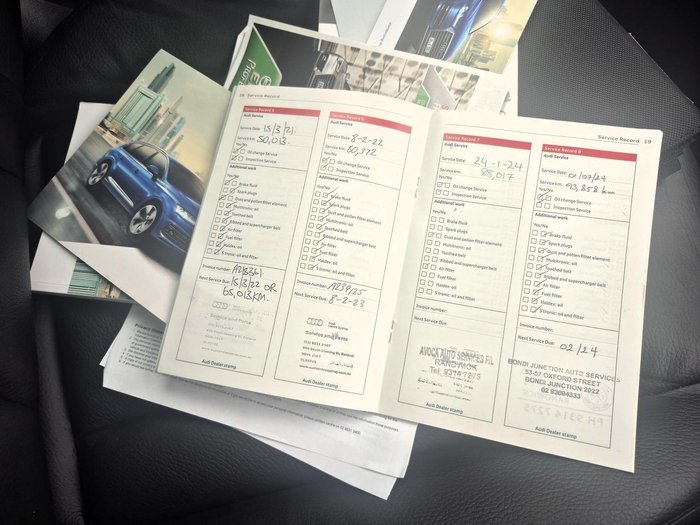 18 Service Record
Service Record 5
Audi Service
Service Date: 15/3/21
Service km: 50,013
Yes/No
Oil change Service
Inspection Service
Additional work
Yes/No
Brake fluid
Spark plugs
Dust and pollen filter element
Multitronic: oil
Toothed belt
Ribbed and supercharger belt
Air filter
Fuel filter
Haldex: oil
S tronic: oil and filter
Invoice number:
Next Service Due: 15/3/22 OR
65,013KM.
Service and Parts
Audi Dealer stamp
Service Record 6
Audi Service
Service Date: 8-2-22
Service km: 60,372
Yes/No
Oil change Service
Inspection Service
Additional work
Yes/No
Brake fluid
Spark plugs
Dust and pollen filter element
Multitronic: oil
Toothed belt
Ribbed and supercharger belt
Air filter
Fuel filter
Haldex: oil
S tronic: oil and filter
Invoice number: A239125
Next Service Due: 8-2-23
Audi
Service and Parts
Audi Dealer stamp
Service Record 19
Service Record 7
Audi Service
Service Date: 24-1-24
Service km: 88,017
Yes/No
Oil change Service
Inspection Service
Additional work
Yes/No
Brake fluid
Spark plugs
Dust and pollen filter element
Multitronic: oil
Toothed belt
Ribbed and supercharger belt
Air filter
Fuel filter
Haldex: oil
S tronic: oil and filter
Invoice number:
Next Service Due:
AVOCA AUTO SERVICES P/L
RANDWICK
Tel: 9314 7275
Audi Dealer stamp
Service Record 8
Audi Service
Service Date: 01/07/24
Service km: 93,858 km
Yes/No
Oil change Service
Inspection Service
Additional work
Yes/No
Brake fluid
Spark plugs
Dust and pollen filter element
Multitronic: oil
Toothed belt
Ribbed and supercharger belt
Air filter
Fuel filter
Haldex: oil
S tronic: oil and filter
Invoice number:
Next Service Due: 02/24
BONDI JUNCTION AUTO SERVICES
53-57 OXFORD STREET
BONDI JUNCTION 2022
02 93694333
RANDWICK
PH: 9314 7275
Audi Dealer stamp